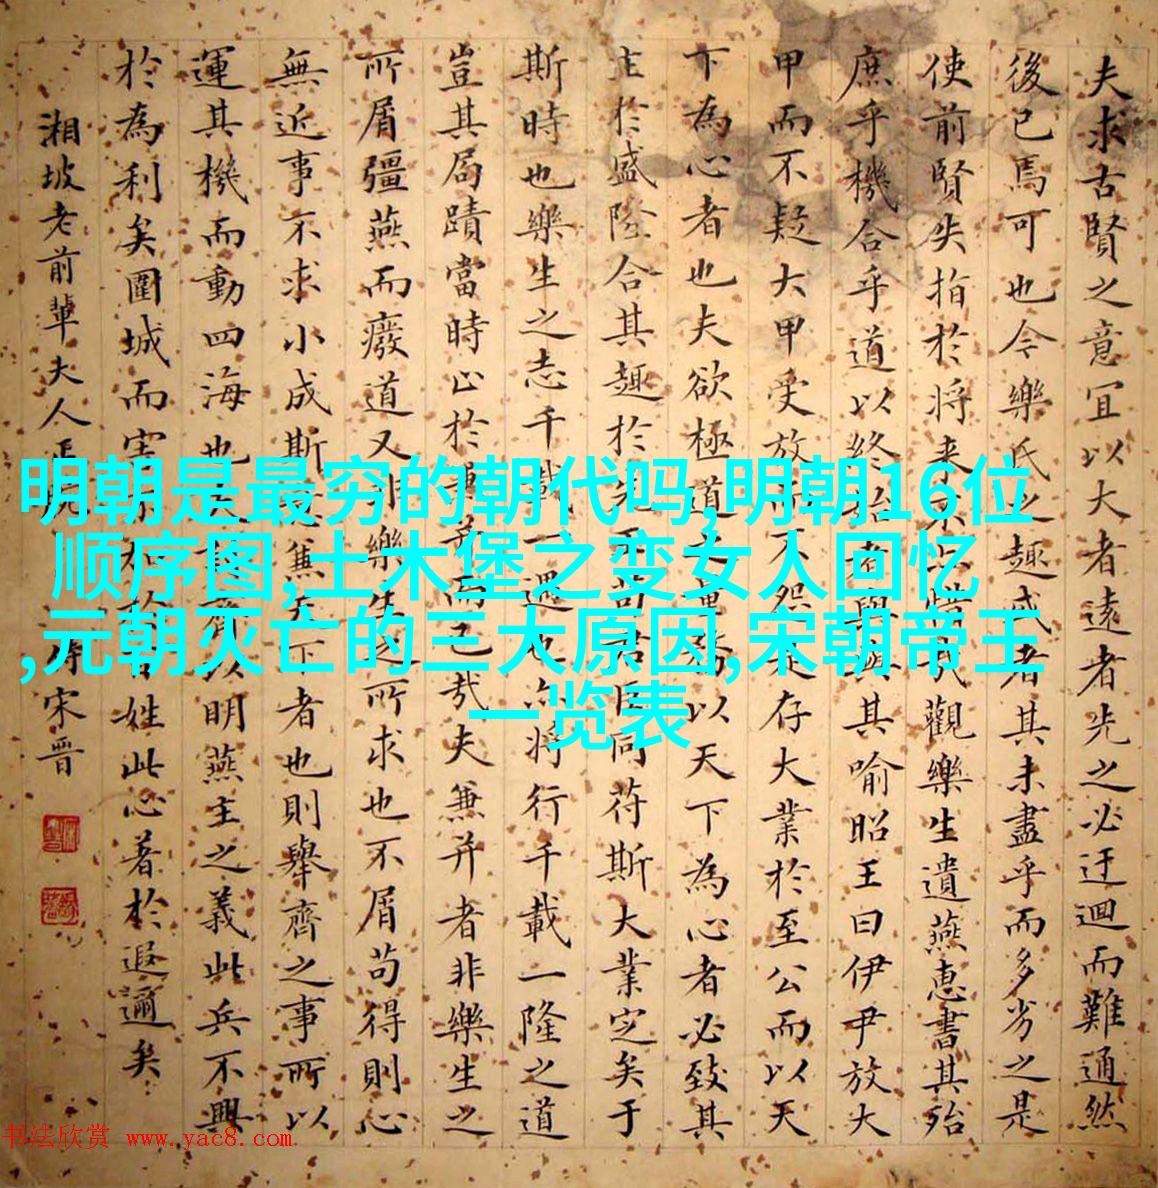 夫求古賢之意宜以大者遠者先之必迂迴而難通然
後已焉可也今樂氏之趣或者其未盡乎而多劣之是
使前賢失指於将来不亦惜哉觀樂生遺燕惠書其殆
庶乎機合乎道以終始者與其喻昭王曰伊尹放大
甲而不疑大甲受放而不怨是存大業於至公而以天
下為心者也夫欲極道之量務以天下為心者必致其
主於盛隆合其趣於先王苟君臣同苻斯大業定矣于
斯時也樂生之志千載一遇也亦将行千載一隆之道
豈其局蹟當時止於兼并而已哉夫兼并者非樂生之
所屑彊燕而廢道又非樂生之所求也不屑苟得則心
無近事不求小成斯意兼天下者也則舉齊之事所以
運其機而動四海也夫討齊以明燕主之義此兵不興
於為利矣圍城而害不加於百姓此心著於遐邇矣
湘坡老前輩夫人正 侍宋晋
明朝是最穷的朝代吗,明朝16位
顺序图,土木堡之变女人回忆
,元朝灭亡的三大原因,宋朝帝王
一览表
书法欣赏 www.yac8.com